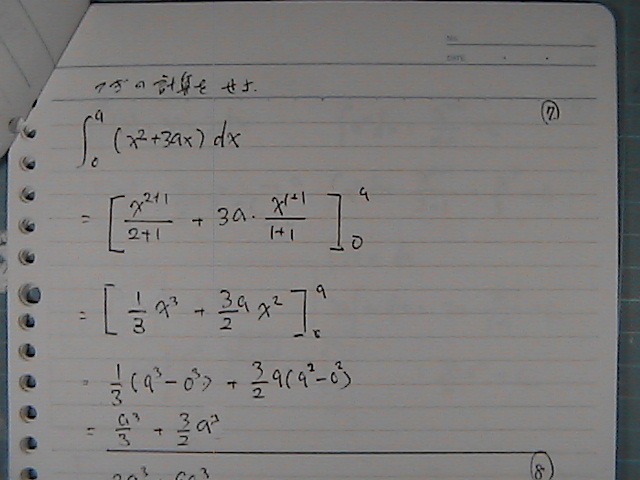 NO.
DATE
の計算をせよ.
⑦
∫₀ᵃ (x²+3ax) dx
= [ x²⁺¹/2+1 + 3a・x¹⁺¹/1+1 ]₀ᵃ
= [ 1/3 x³ + 3a/2 x² ]₀ᵃ
= 1/3 (a³-0³) + 3/2 a(a²-0²)
= a³/3 + 3/2 a³
⑧